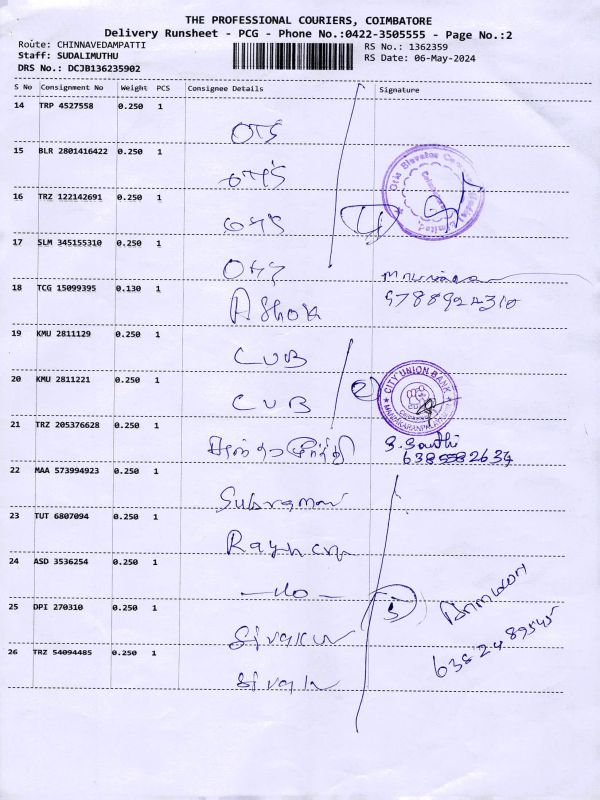 THE PROFESSIONAL COURIERS, COIMBATORE
Delivery Runsheet - PCG - Phone No.:0422-3505555 - Page No.:2
Route: CHINNAVEDAMPATTI
RS No.: 1362359
Staff: SUDALIMUTHU
RS Date: 06-May-2024
DRS No.: DCJB136235902
S No Consignment No Weight PCS Consignee Details Signature
14 TRP 4527558 0.250 1
OTS
15 BLR 2801416422 0.250 1
OTIS
16 TRZ 122142691 0.250 1
OTIS
17 SLM 345155310 0.250 1
OTIS
18 TCG 15099395 0.130 1
Ashok
9788924310
19 KMU 2811129 0.250 1
CUB
20 KMU 2811221 0.250 1
CUB
CITY UNION BANK
21 TRZ 205376628 0.250 1
S. Santhi
22 MAA 573994923 0.250 1
Subraman
23 TUT 6807094 0.250 1
24 ASD 3536254 0.250 1
25 DPI 270310 0.250 1
5
26 TRZ 54094485 0.250 1